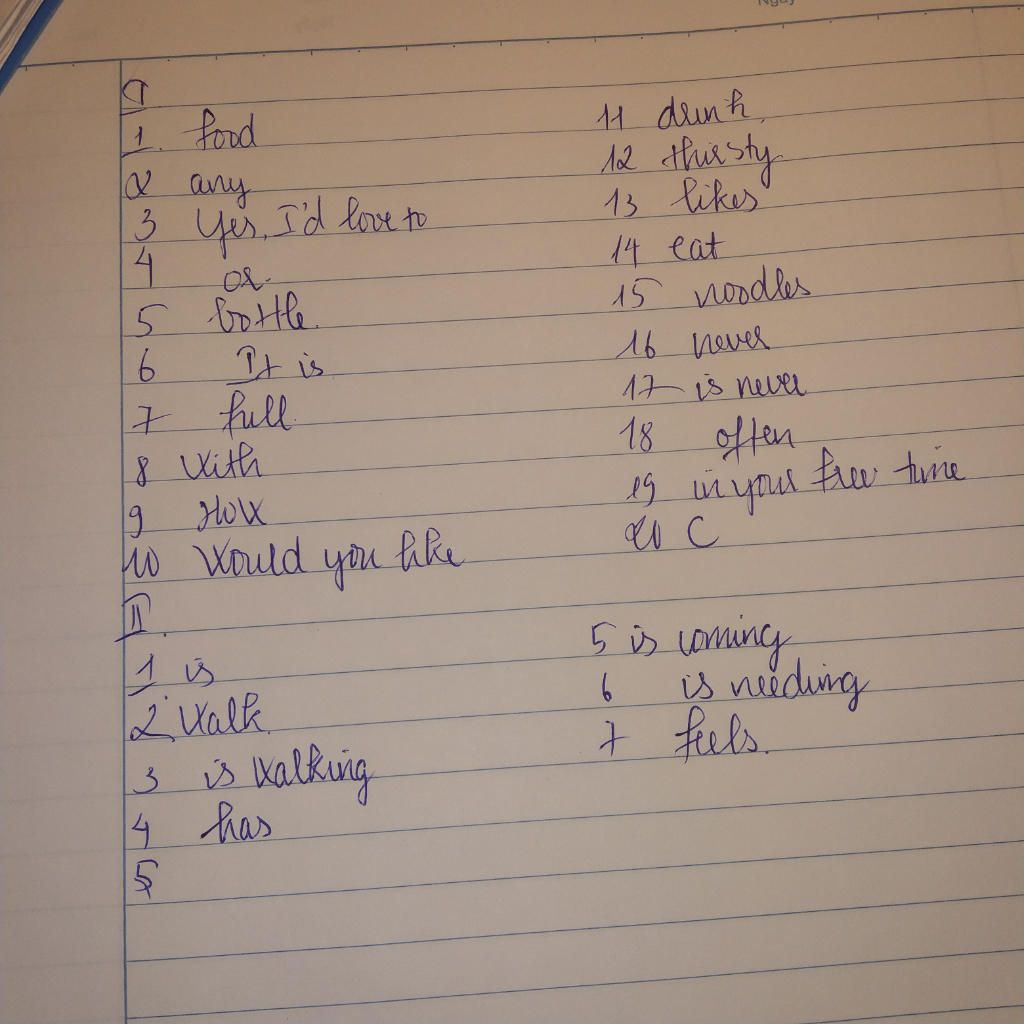 I
1. food
2 any
3 Yes, I'd love to
4 or
5 bottle.
6 It is
7 full
8 with
9 How
10 Would you like
11 drink.
12 thirsty
13 likes
14 eat
15 noodles
16 never
17 is never
18 often
19 in your free time
20 C
II.
1 is
2 walk.
3 is walking
4 has
5
5 is coming
6 is needing
7 feels.